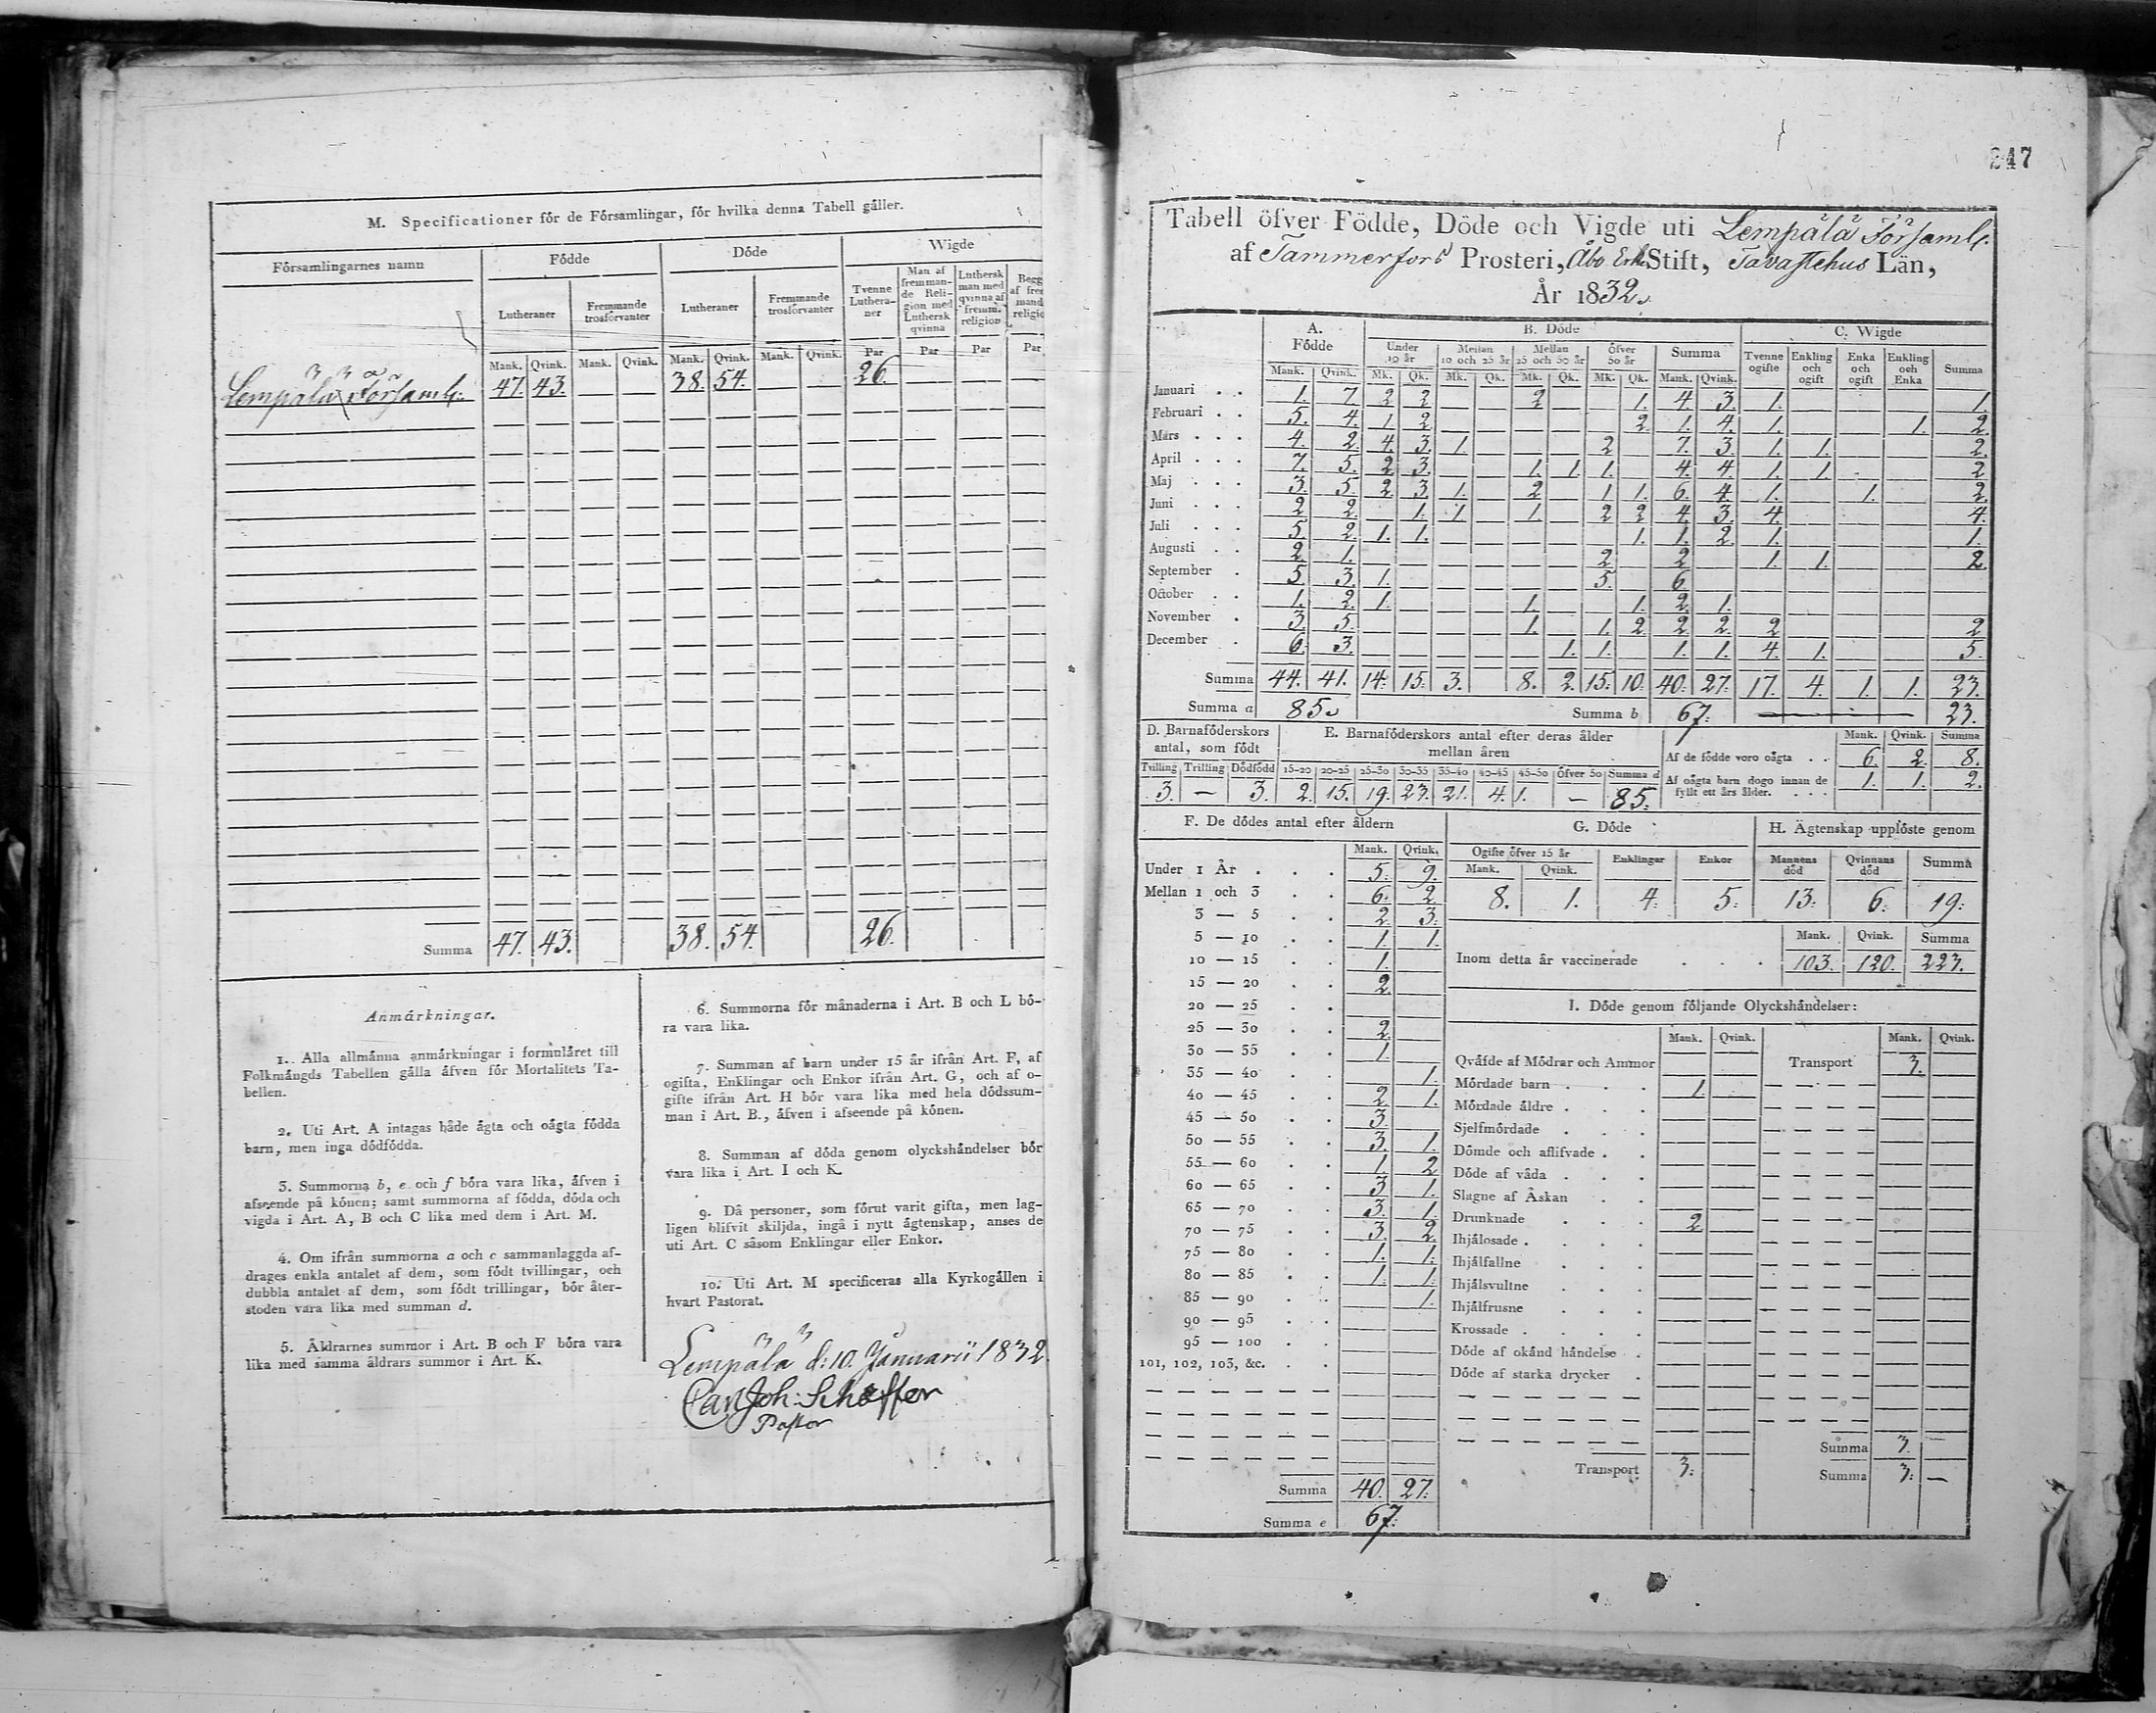 M. Specificationer för de Församlingar, för hvilka denna Tabell gäller.
Församlingarnes namn | Födde | Döde | Wigde
Lutheraner | Fremmande trosförvanter | Lutheraner | Fremmande trosförvanter | Tvenne Lutheraner | Man af fremmande Religion med Luthersk qvinna | Luthersk man med qvinna af fremm. religion | Begg af frem mand religio
Mank. | Qvink. | Mank. | Qvink. | Mank. | Qvink. | Mank. | Qvink. | Par | Par | Par | Par
Lempälä Församl: | 47. | 43. | — | — | 38. | 54. | — | — | 26.
Summa | 47. | 43. | 38. | 54. | 26.
Anmärkningar.
1. Alla allmänna anmärkningar i formuläret till
Folkmängds Tabellen gälla äfven för Mortalitets Ta-
bellen.
2. Uti Art. A intagas både ägta och oägta födda
barn, men inga dödfödda.
3. Summorna b, e och f böra vara lika, äfven i
afseende på könen; samt summorna af födda, döda och
vigda i Art. A, B och C lika med dem i Art. M.
4. Om ifrån summorna a och c sammanlaggda af-
drages enkla antalet af dem, som födt tvillingar, och
dubbla antalet af dem, som födt trillingar, bör åter-
stoden vara lika med summan d.
5. Äldrarnes summor i Art. B och F böra vara
lika med samma åldrars summor i Art. K.
6. Summorna för månaderna i Art. B och L bö-
ra vara lika.
7. Summan af barn under 15 år ifrån Art. F, af
ogifta, Enklingar och Enkor ifrån Art. G, och af o-
gifte ifrån Art. H bör vara lika med hela dödssum-
man i Art. B., äfven i afseende på könen.
8. Summan af döda genom olyckshändelser bör
vara lika i Art. I och K.
9. Då personer, som förut varit gifta, men lag-
ligen blifvit skiljda, ingå i nytt ägtenskap, anses de
uti Art. C såsom Enklingar eller Enkor.
10. Uti Art. M specificeras alla Kyrkogällen i
hvart Pastorat.
Lempälä d: 10. Januarii 1832
Carl Joh: Scheffer
Pastor
247
Tabell öfver Födde, Döde och Vigde uti Lempälä Församl:
af Tammerfors Prosteri, Åbo Erke Stift, Tavastehus Län,
År 1832.
A. Födde | B. Döde | C. Wigde
Under 10 år | Mellan 10 och 25 år | Mellan 25 och 50 år | Öfver 50 år | Summa | Tvenne ogifte | Enkling och ogift | Enka och ogift | Enkling och Enka | Summa
Mank. | Qvink. | Mk. | Qk. | Mk. | Qk. | Mk. | Qk. | Mk. | Qk. | Mank. | Qvink.
Januari . . | 1. | 7. | 2 | 2 | — | — | 2 | — | — | 1. | 4. | 3. | 1. | — | — | — | 1.
Februari . . | 5. | 4. | 1. | 2 | — | — | — | — | — | 2. | 1. | 4. | 1. | — | — | 1. | 2.
Mars . . . | 4. | 2. | 4. | 3. | 1. | — | — | — | 2 | — | 7. | 3. | 1. | 1. | — | — | 2.
April . . . | 7. | 5. | 2 | 3. | — | — | 1. | 1. | 1. | — | 4. | 4. | 1. | 1. | — | — | 2
Maj . . . | 3. | 5. | 2. | 3. | 1. | — | 2 | — | 1 | 1. | 6. | 4. | 1. | — | 1. | — | 2.
Juni . . . | 2 | 2. | — | 1. | 1 | — | 1. | — | 2 | 2 | 4. | 3. | 4. | — | — | — | 4.
Juli . . . | 5. | 2. | 1. | 1. | — | — | — | — | — | 1. | 1. | 2. | 1. | — | — | — | 1.
Augusti . . | 2 | 1. | — | — | — | — | — | — | 2. | — | 2 | — | 1. | 1. | — | — | 2.
September . | 5. | 3. | 1. | — | — | — | — | — | 5. | — | 6 | — | — | — | — | — | —
October . . | 1. | 2. | 1. | — | — | — | 1. | — | — | 1. | 2. | 1. | — | — | — | — | —
November . | 3. | 5. | — | — | — | — | 1. | — | 1. | 2 | 2 | 2. | 2 | — | — | — | 2
December . | 6. | 3. | — | — | — | — | — | 1. | 1. | — | 1. | 1. | 4. | 1. | — | — | 5.
Summa | 44. | 41. | 14. | 15. | 3. | 8. | 2. | 15. | 10. | 40. | 27. | 17. | 4. | 1. | 1. | 23.
Summa a | 85. | Summa b | 67. | 23.
D. Barnaföderskors antal, som födt
Tvilling | Trilling | Dödfödd
3. | — | 3.
E. Barnaföderskors antal efter deras ålder mellan åren
15-20 | 20-25 | 25-30 | 30-35 | 35-40 | 40-45 | 45-50 | Öfver 50 | Summa d
2. | 15. | 19. | 23. | 21. | 4. | 1. | — | 85.
Mank. | Qvink. | Summa
Af de födde voro oägta . . | 6. | 2. | 8.
Af oägta barn dogo innan de fyllt ett års ålder. . . . | 1. | 1. | 2.
F. De dödes antal efter åldern
Mank. | Qvink.
Under 1 År . . . | 5. | 9.
Mellan 1 och 3 . . | 6. | 2
3 — 5 . . | 2. | 3.
5 — 10 . . | 1. | 1.
10 — 15 . . | 1.
15 — 20 . . | 2.
20 — 25 . .
25 — 30 . . | 2.
30 — 35 . . | 1.
35 — 40 . . | | 1.
40 — 45 . . | 2 | 1.
45 — 50 . . | 3.
50 — 55 . . | 3. | 1.
55 — 60 . . | 1. | 2
60 — 65 . . | 3 | 1.
65 — 70 . . | 3. | 1.
70 — 75 . . | 3. | 2.
75 — 80 . . | 1. | 1.
80 — 85 . . | 1. | 1.
85 — 90 . . | | 1.
90 — 95 . .
95 — 100 . .
101, 102, 103, &c. . .
Summa | 40. | 27.
Summa e | 67.
G. Döde
Ogifte öfver 15 år | Enklingar | Enkor
Mank. | Qvink.
8. | 1. | 4. | 5.
H. Ägtenskap upplöste genom
Mannens död | Qvinnans död | Summa
13. | 6. | 19.
Mank. | Qvink. | Summa
Inom detta år vaccinerade . . . | 103. | 120. | 223.
I. Döde genom följande Olyckshändelser:
Mank. | Qvink. | Mank. | Qvink.
Qväfde af Mödrar och Ammor | Transport | 3.
Mördade barn . . . | 1.
Mördade äldre . . .
Sjelfmördade . . .
Dömde och aflifvade . .
Döde af våda . . .
Slagne af Åskan . .
Drunknade . . . | 2
Ihjälosade . . . .
Ihjälfallne . . .
Ihjälsvultne . . .
Ihjälfrusne . . .
Krossade . . . .
Döde af okänd händelse .
Döde af starka drycker .
Summa | 3. | —
Transport | 3. | Summa | 3. | —